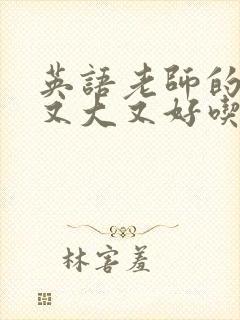 英語老師的
又大又好喫
林害羞